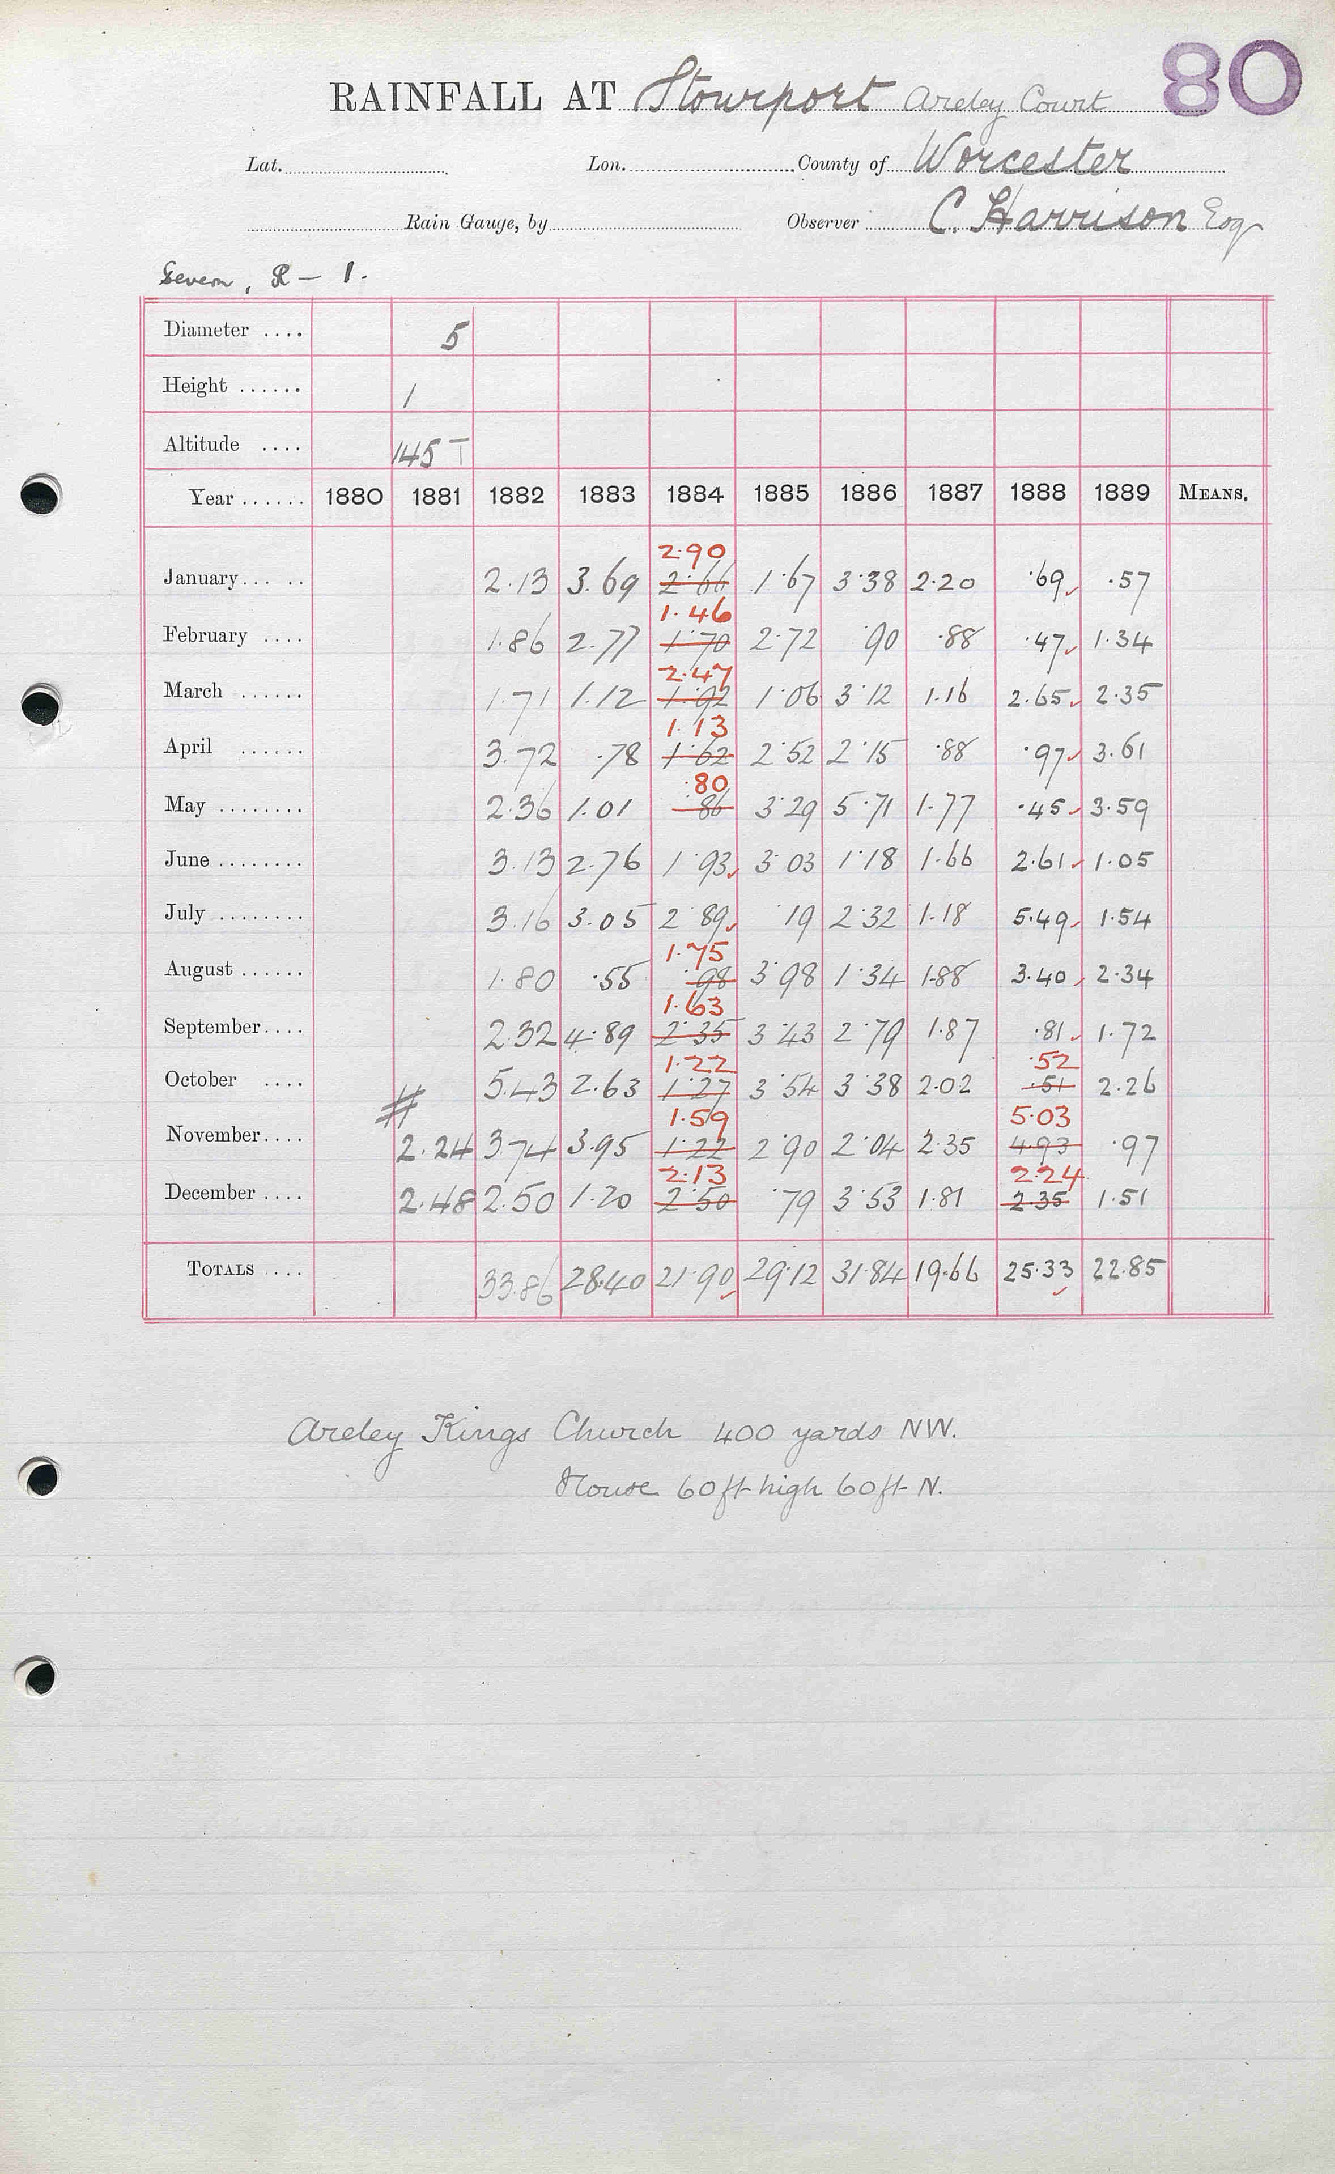 80
RAINFALL AT Stourport Areley Court
Lat. Lon. County of Worcester
Rain Gauge, by Observer C. Harrison Esq
Severn, R – 1.
Diameter .... 5
Height ...... 1
Altitude .... 145 T
Year ...... 1880 1881 1882 1883 1884 1885 1886 1887 1888 1889 MEANS.
2.90
January ... .. 2.13 3.69 2.66 1.67 3.38 2.20 .69 .57
1.46
February .... 1.86 2.77 1.70 2.72 .90 .88 .47 1.34
2.47
March ...... 1.71 1.12 1.92 1.06 3.12 1.16 2.65 2.35
1.13
April ...... 3.72 .78 1.62 2.52 2.15 .88 .97 3.61
.80
May ........ 2.36 1.01 .86 3.29 5.71 1.77 .45 3.59
June ........ 3.13 2.76 1.93 3.03 1.18 1.66 2.61 1.05
July ........ 3.16 3.05 2.89 .19 2.32 1.18 5.49 1.54
1.75
August ...... 1.80 .55 .98 3.98 1.34 1.88 3.40 2.34
1.63
September .... 2.32 4.89 2.35 3.43 2.79 1.87 .81 1.72
1.22 .52
October .... 5.43 2.63 1.27 3.54 3.38 2.02 .51 2.26
1.59 5.03
November .... # 2.24 3.74 3.95 1.22 2.90 2.04 2.35 4.93 .97
2.13 2.24
December .... 2.48 2.50 1.20 2.50 .79 3.53 1.81 2.35 1.51
TOTALS ... 33.86 28.40 21.90 29.12 31.84 19.66 25.33 22.85
Areley Kings Church 400 yards NW.
House 60ft high 60ft N.